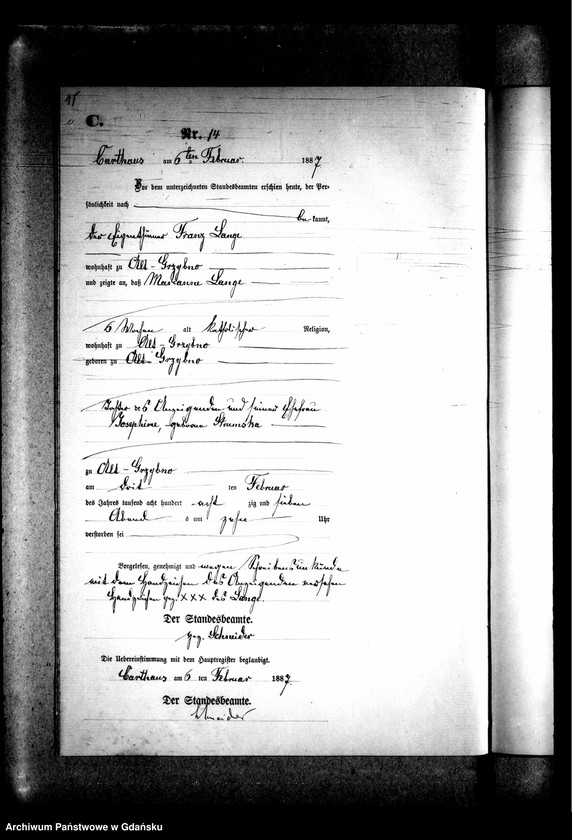 C.
Nr. 14
Carthaus am 6ten Februar. 1887
Vor dem unterzeichneten Standesbeamten erschien heute, der Per-
sönlichkeit nach
be kannt,
der Eigenthümer Franz Lange
wohnhaft zu Alt-Grzybno
und zeigte an, daß Marianne Lange
6 Wochen alt katholischer Religion,
wohnhaft zu Alt-Grzybno
geboren zu Alt-Grzybno
Tochter des Anzeigenden und seiner Ehefrau
Josephine, geborene
zu Alt-Grzybno
am ten Februar
des Jahres tausend acht hundert acht zig und sieben
Abend s um zehn Uhr
verstorben sei
Vorgelesen, genehmigt und wegen Schreibensunkunde
mit dem Handzeichen des Anzeigenden versehen
Handzeichen gez. XXX des Lange.
Der Standesbeamte.
gez. Schneider
Die Uebereinstimmung mit dem Hauptregister beglaubigt.
Carthaus am 6 ten Februar 1887.
Der Standesbeamte.
Schneider
Archiwum Państwowe w Gdańsku